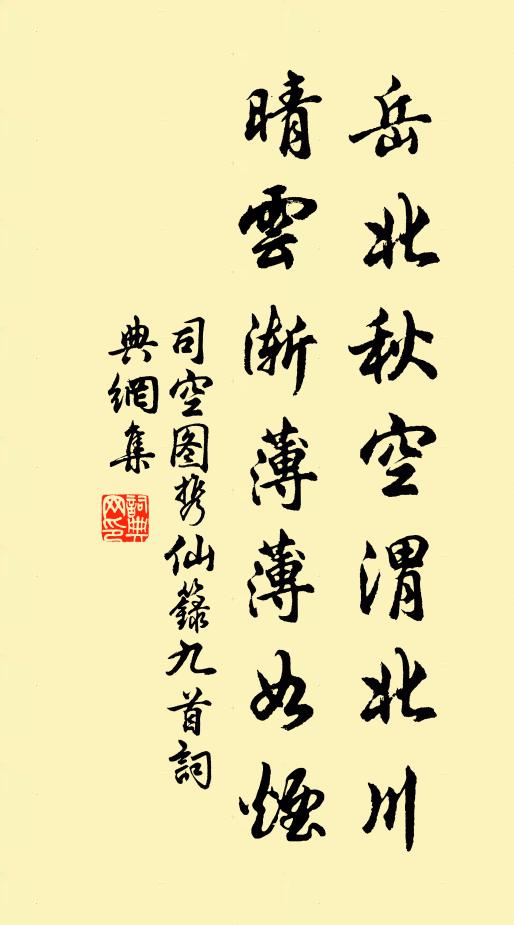 岳北秋空渭北川
晴雲漸薄薄如煙
司空图携仙籙九首詞
典網集
詞典网印